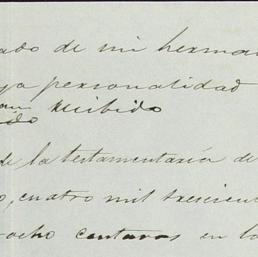 ado de mi herma
ya personalidad
recibido
de la testamentaría de
o, cuatro mil trescien
ocho centavos en la